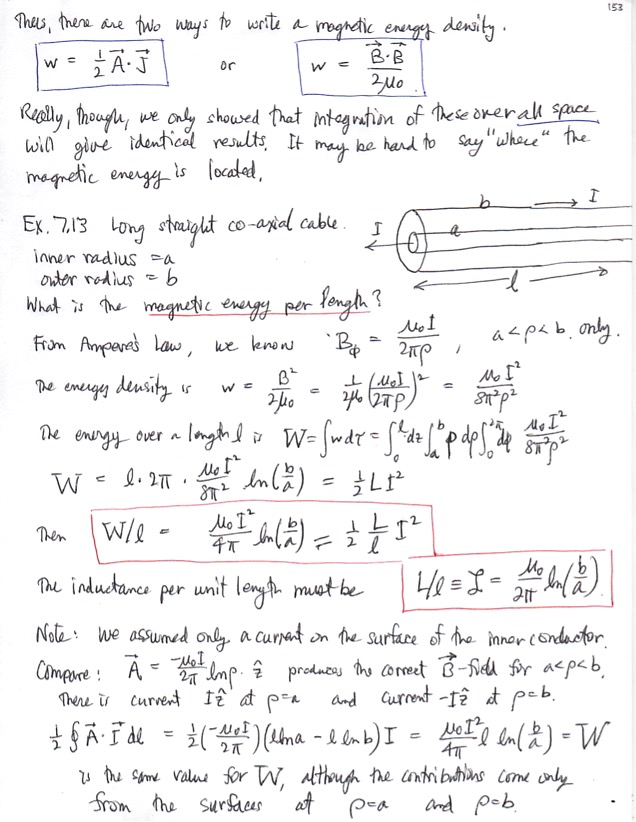 153
Thus, there are two ways to write a magnetic energy density.
w = ½ A⃗·J⃗ or w = B⃗·B⃗ / 2μ₀
Really, though, we only showed that integration of these over all space
will give identical results. It may be hard to say "where" the
magnetic energy is located.
Ex. 7.13 Long straight co-axial cable.
inner radius = a
outer radius = b
I a b → I
l
What is the magnetic energy per length?
From Ampere's Law, we know B_φ = μ₀I / 2πρ , a<ρ<b. only.
The energy density is w = B² / 2μ₀ = 1/2μ₀ (μ₀I / 2πρ)² = μ₀I² / 8π²ρ²
The energy over a length l is W = ∫w dτ = ∫₀ˡ dz ∫ₐᵇ ρ dρ ∫₀²π dφ μ₀I² / 8π²ρ²
W = l · 2π · μ₀I² / 8π² ln(b/a) = ½ L I²
Then W/l = μ₀I² / 4π ln(b/a) = ½ L/l I²
The inductance per unit length must be L/l ≡ ℒ = μ₀ / 2π ln(b/a)
Note: We assumed only a current on the surface of the inner conductor.
Compare: A⃗ = -μ₀I / 2π lnρ · ẑ produces the correct B⃗-field for a<ρ<b.
There is current Iẑ at ρ=a and current -Iẑ at ρ=b.
½ ∮ A⃗·I⃗ dl = ½ (-μ₀I / 2π)(l ln a - l ln b) I = μ₀I² / 4π l ln(b/a) = W
is the same value for W, although the contributions come only
from the surfaces at ρ=a and ρ=b.